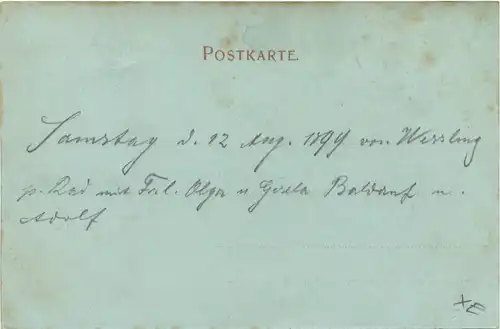 POSTKARTE.
Samstag d. 12 Aug. 1899 von Wessling
p. Rad mit Frl. Olga u Gisela Baldauf u.
Adolf